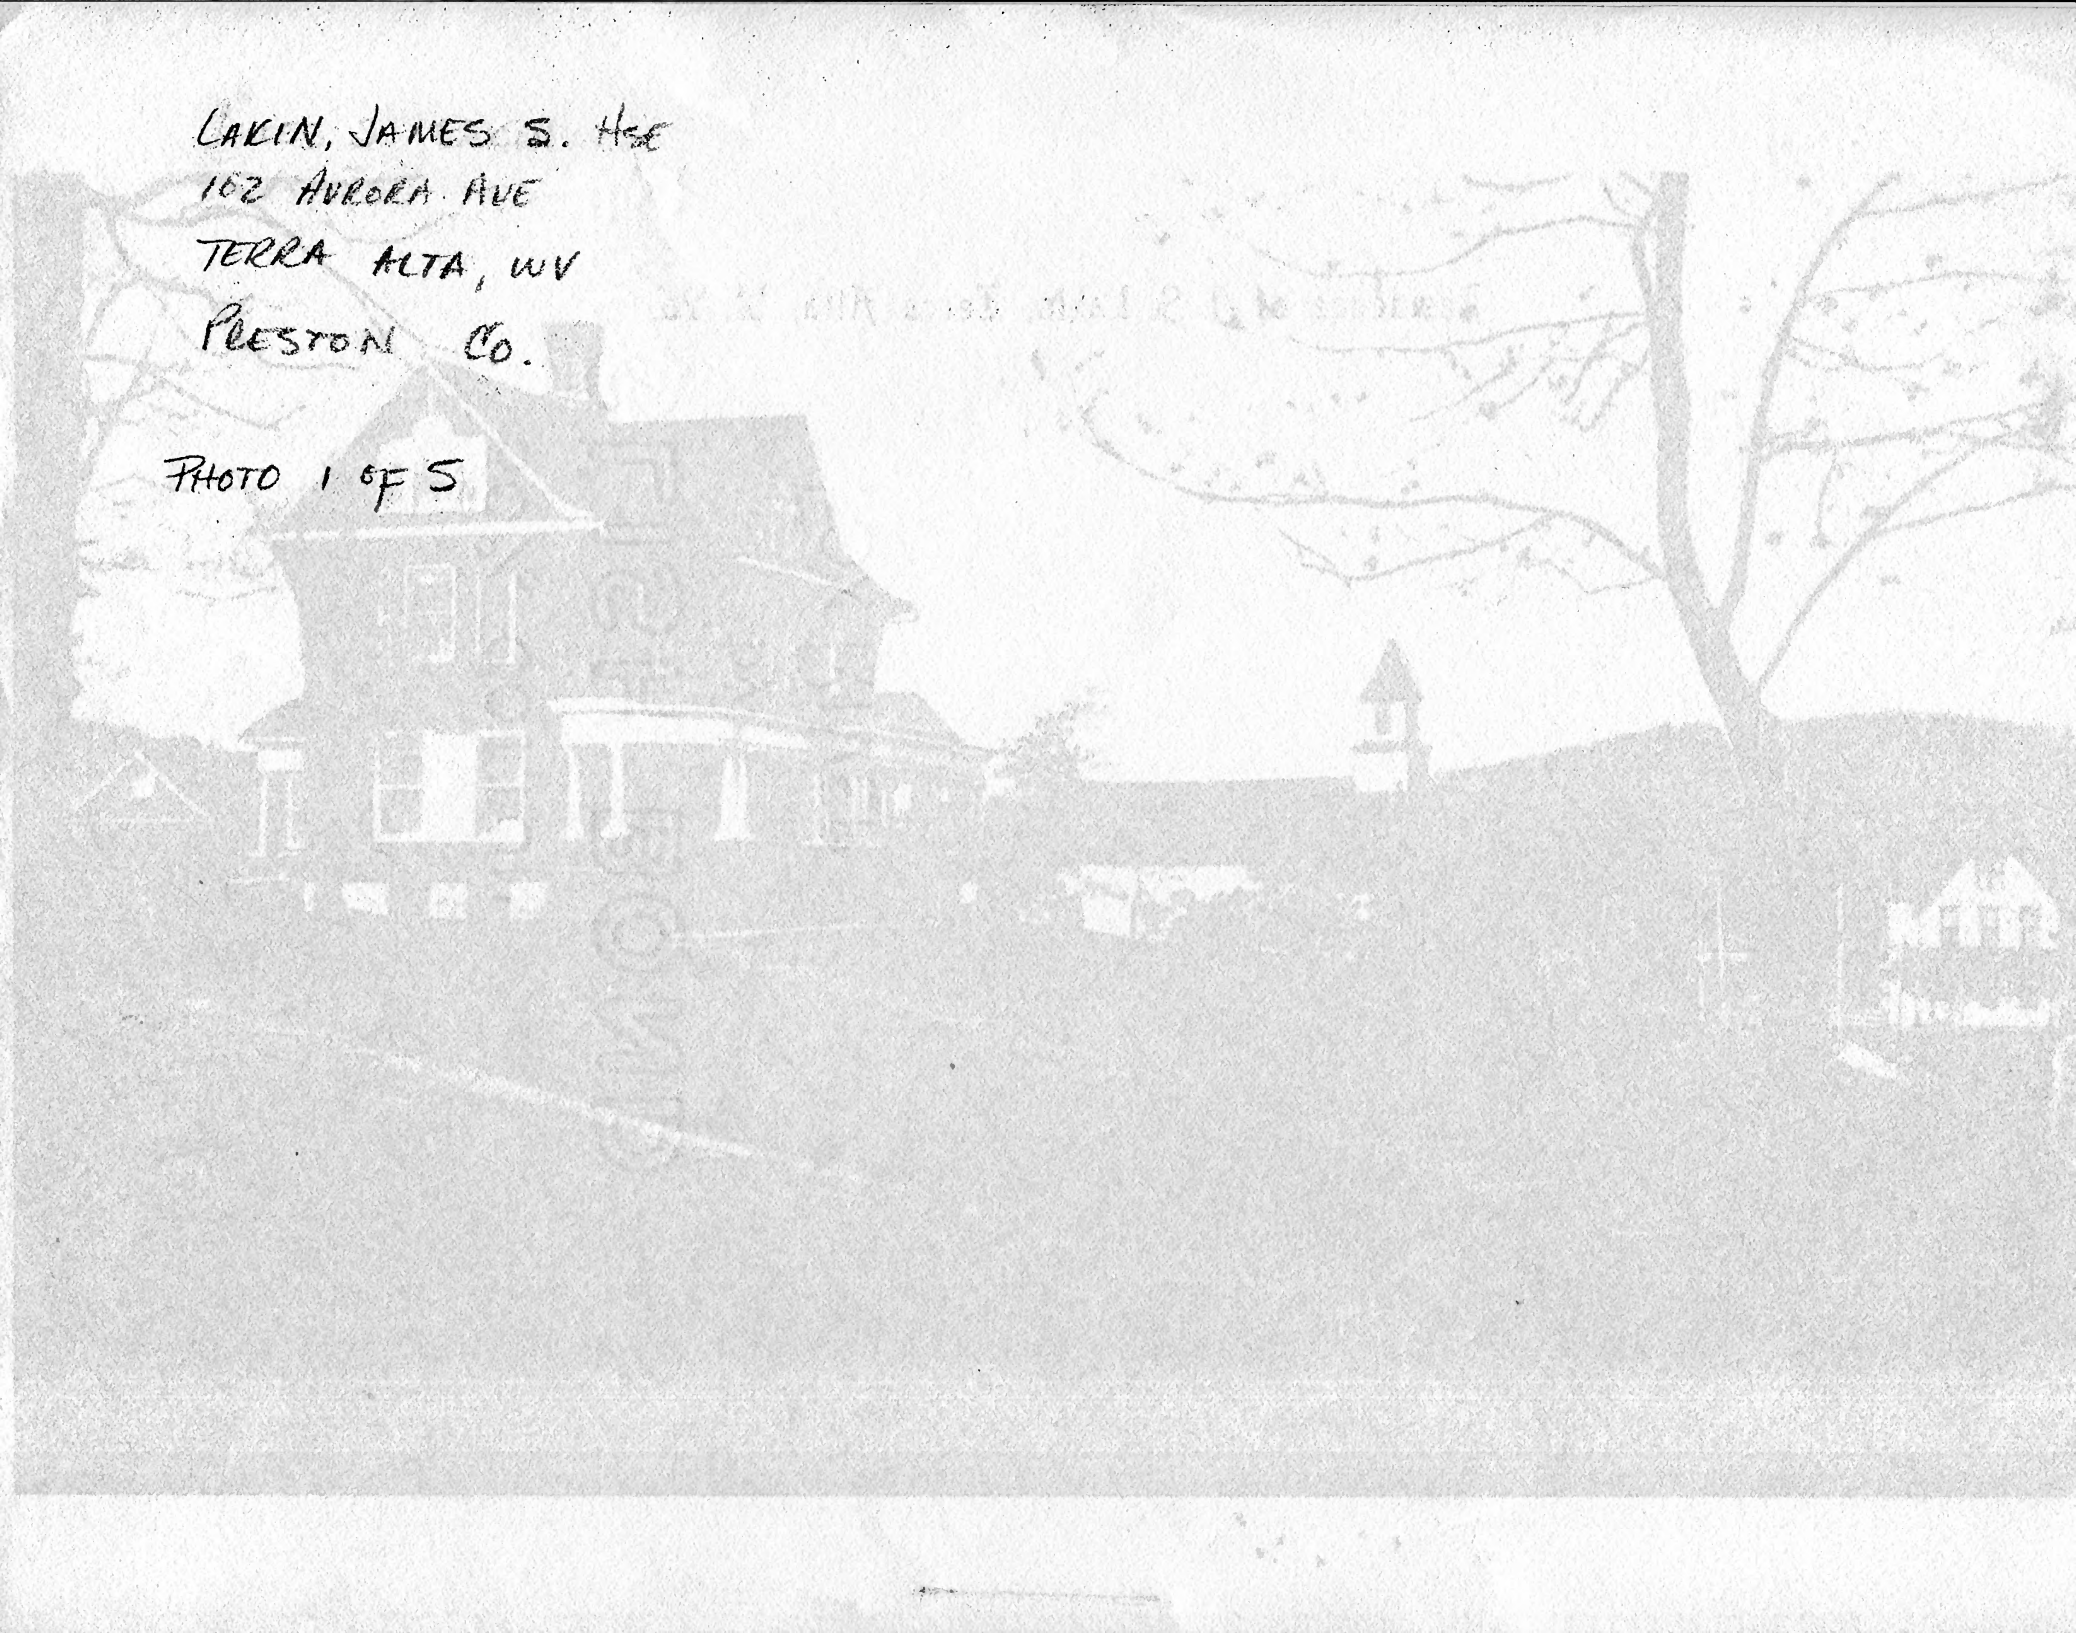 LAKIN, JAMES S. HSE
102 AURORA AVE
TERRA ALTA, WV
PRESTON CO.
PHOTO 1 OF 5